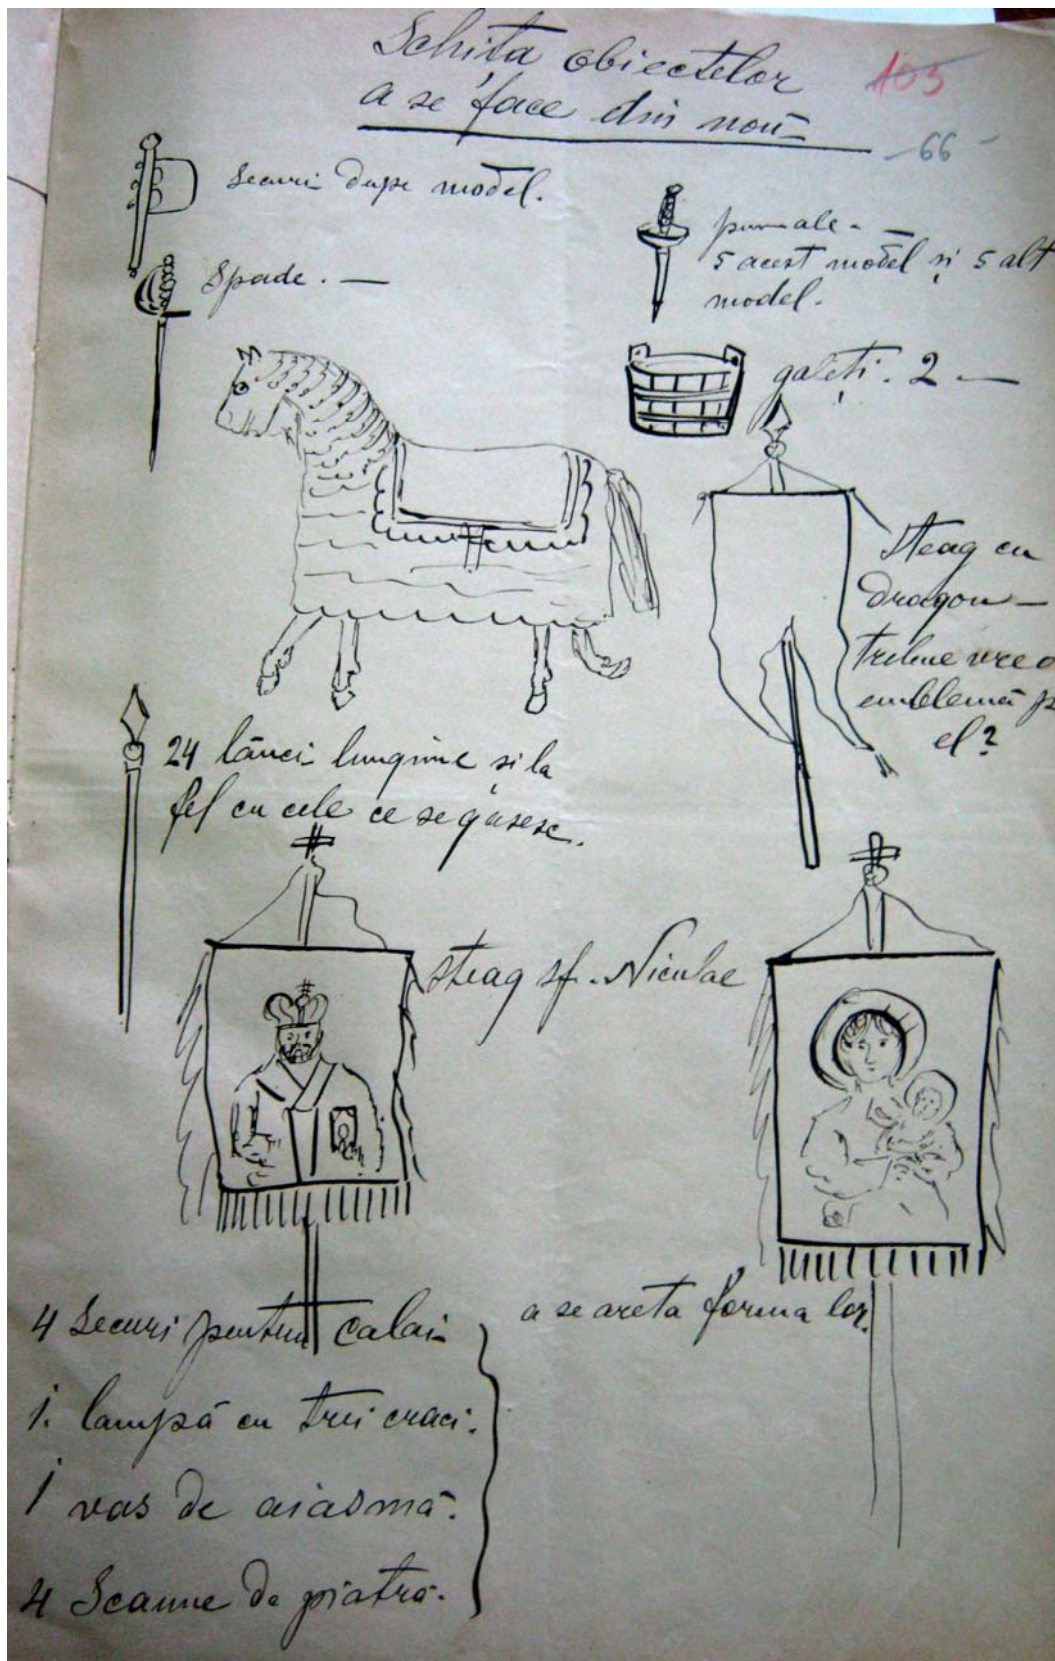 Schița obiectelor
a se face din noŭ
103
- 66 -
Securi după model.
pumnale. —
5 acest model și 5 alt
model.
Spade. —
galeți. 2 —
Steag cu
dragon —
trebue vre o
emblemă p
el?
24 lănci lungime și la
fel cu cele ce se găsesc.
steag sf. Niculae
4 Securi pentru calai
a se areta forma lor.
1. lampă cu trei craci.
1 vas de aiasmă.
4 Scaune de piatră.